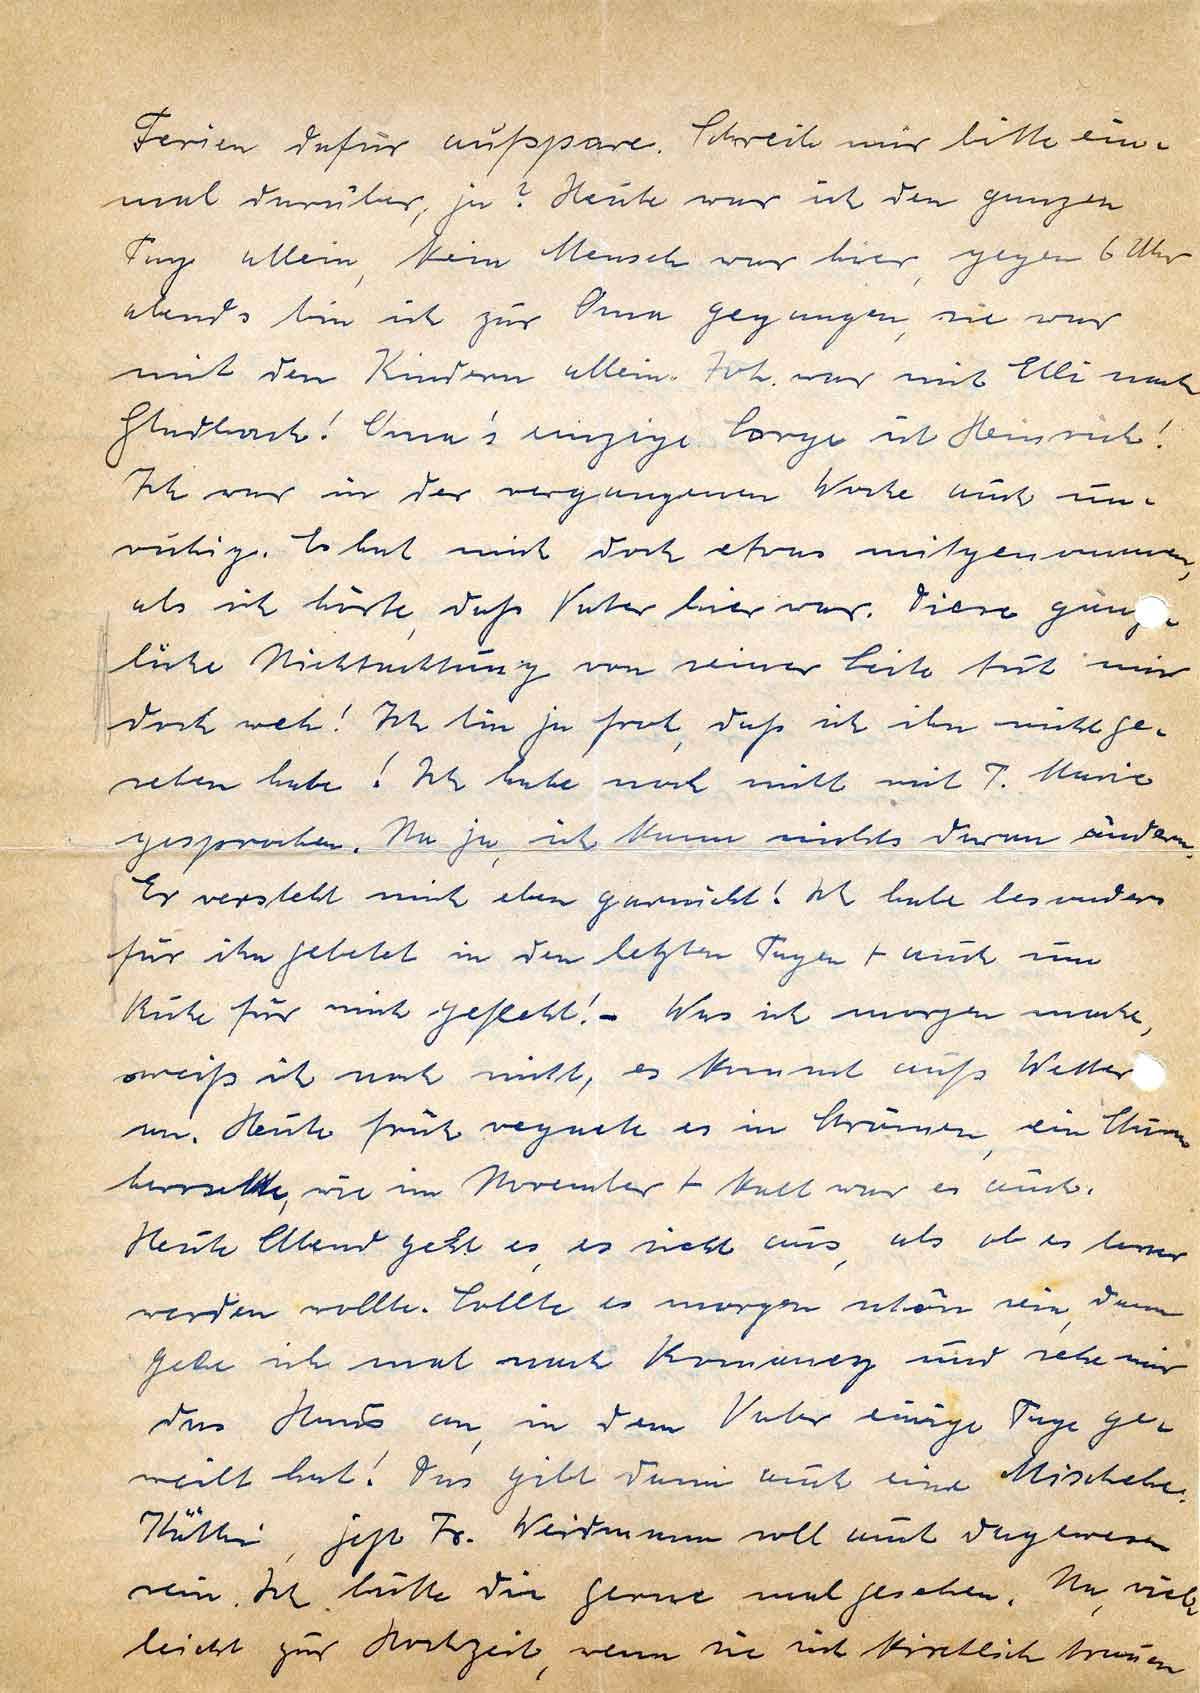 Ferien dafür aufspare. Schreib mir bitte ein-
mal darüber, ja? Heute war ich den ganzen
Tag allein, kein Mensch war hier, gegen 6 Uhr
abends bin ich zur Oma gegangen, sie war
mit den Kindern allein. Joh. war mit Elli nach
Gladbach! Oma's einzige Sorge ist Heinrich!
Ich war in der vergangenen Woche auch un-
ruhig. Es hat mich doch etwas mitgenommen,
als ich hörte, daß Vater hier war. Diese gänz-
liche Nichtachtung von seiner Seite tut mir
doch weh! Ich bin ja froh, daß ich ihn nicht ge-
sehen habe! Ich habe noch nicht mit T. Marie
gesprochen. Na ja, ich kann nichts daran ändern.
Er versteht mich eben garnicht! Ich habe besonders
für ihn gebetet in den letzten Tagen + auch um
Ruhe für mich gefleht! - Was ich morgen mache,
weiß ich noch nicht, es kommt aufs Wetter
an. Heute früh regnete es in Strömen, ein Sturm
herrschte, wie im November + kalt war es auch.
Heute Abend geht es, es sieht aus, als ob es besser
werden wollte. Sollte es morgen schön sein, dann
gehe ich mal nach und sehe mir
das Haus an, in dem Vater einige Tage ge-
weilt hat! Das gibt dann auch eine Mischehe.
Käthi, jetzt Fr. Weidmann soll auch dagewesen
sein. Ich hätte die gerne mal gesehen. Na, viel-
leicht zur Hochzeit, wenn sie sich kirchlich trauen